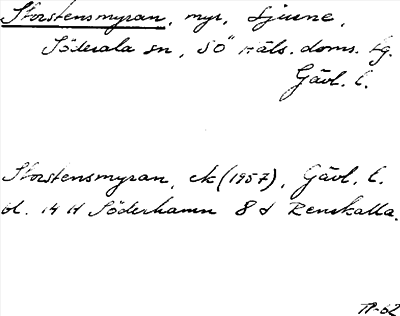 Storstensmyran, myr, Ljusne,
Söderala sn, SÖ Häls. doms. tg.
Gävl. l.
Storstensmyran, ek (1957), Gävl. l.
bl. 14 H Söderhamn 8 d Renskalla.
TP-62